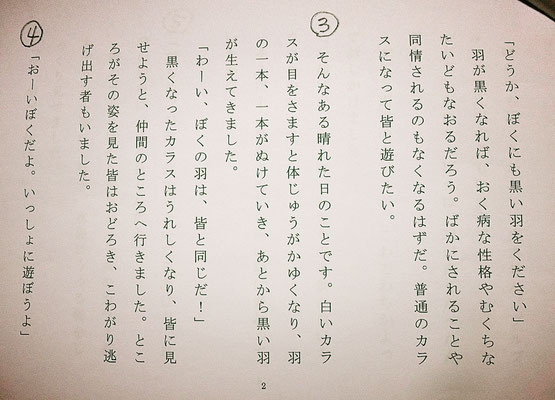 「どうか、ぼくにも黒い羽をください」
羽が黒くなれば、おく病な性格やむくちな
たいどもなおるだろう。ばかにされることや
同情されるのもなくなるはずだ。普通のカラ
スになって皆と遊びたい。
③
そんなある晴れた日のことです。白いカラ
スが目をさますと体じゅうがかゆくなり、羽
の一本、一本がぬけていき、あとから黒い羽
が生えてきました。
「わーい、ぼくの羽は、皆と同じだ！」
黒くなったカラスはうれしくなり、皆に見
せようと、仲間のところへ行きました。とこ
ろがその姿を見た皆はおどろき、こわがり逃
げ出す者もいました。
④
「おーいぼくだよ。いっしょに遊ぼうよ」
2